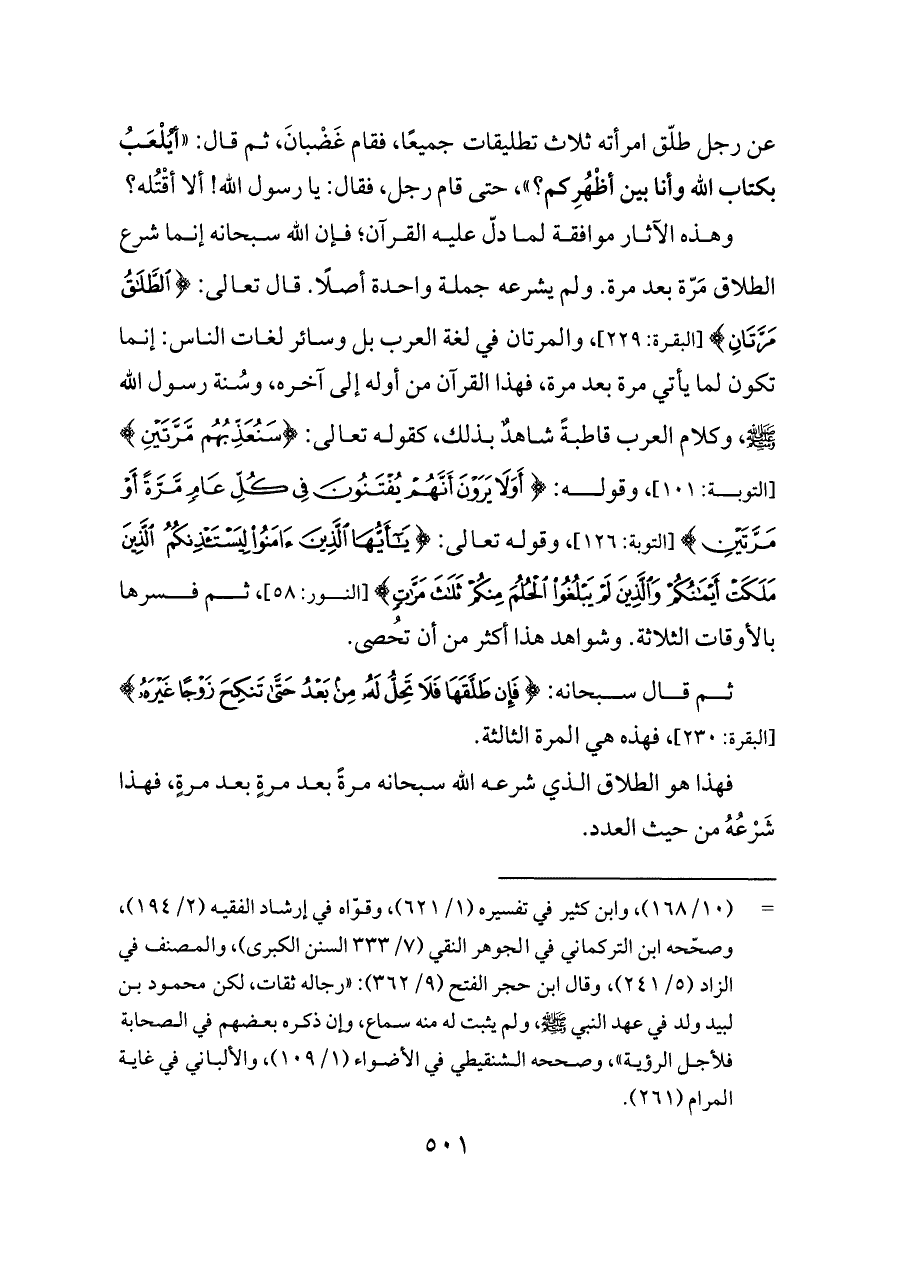 عن رجل طلّق امرأته ثلاث تطليقات جميعًا، فقام غَضْبانَ، ثم قال: «أيُلْعَبُ
بكتاب الله وأنا بين أظْهُرِكم؟»، حتى قام رجل، فقال: يا رسول الله! ألا أقْتُله؟
وهذه الآثار موافقة لما دلّ عليه القرآن؛ فإن الله سبحانه إنما شرع
الطلاق مَرّة بعد مرة. ولم يشرعه جملة واحدة أصلًا. قال تعالى: ﴿ٱلطَّلَٰقُ
مَرَّتَانِ﴾ [البقرة: ٢٢٩]، والمرتان في لغة العرب بل وسائر لغات الناس: إنما
تكون لما يأتي مرة بعد مرة، فهذا القرآن من أوله إلى آخره، وسُنة رسول الله
ﷺ، وكلام العرب قاطبةً شاهدٌ بذلك، كقوله تعالى: ﴿سَنُعَذِّبُهُم مَّرَّتَيْنِ﴾
[التوبة: ١٠١]، وقوله: ﴿أَوَلَا يَرَوْنَ أَنَّهُمْ يُفْتَنُونَ فِي كُلِّ عَامٍ مَّرَّةً أَوْ
مَرَّتَيْنِ﴾ [التوبة: ١٢٦]، وقوله تعالى: ﴿يَٰٓأَيُّهَا ٱلَّذِينَ ءَامَنُوا۟ لِيَسْتَـْٔذِنكُمُ ٱلَّذِينَ
مَلَكَتْ أَيْمَٰنُكُمْ وَٱلَّذِينَ لَمْ يَبْلُغُوا۟ ٱلْحُلُمَ مِنكُمْ ثَلَٰثَ مَرَّٰتٍ﴾ [النور: ٥٨]، ثم فسرها
بالأوقات الثلاثة. وشواهد هذا أكثر من أن تُحصى.
ثم قال سبحانه: ﴿فَإِن طَلَّقَهَا فَلَا تَحِلُّ لَهُۥ مِنۢ بَعْدُ حَتَّىٰ تَنكِحَ زَوْجًا غَيْرَهُۥ﴾
[البقرة: ٢٣٠]، فهذه هي المرة الثالثة.
فهذا هو الطلاق الذي شرعه الله سبحانه مرةً بعد مرةٍ بعد مرةٍ، فهذا
شَرْعُهُ من حيث العدد.
= (١٠/ ١٦٨)، وابن كثير في تفسيره (١/ ٦٢١)، وقوّاه في إرشاد الفقيه (٢/ ١٩٤)،
وصحّحه ابن التركماني في الجوهر النقي (٧/ ٣٣٣ السنن الكبرى)، والمصنف في
الزاد (٥/ ٢٤١)، وقال ابن حجر الفتح (٩/ ٣٦٢): «رجاله ثقات، لكن محمود بن
لبيد ولد في عهد النبي ﷺ، ولم يثبت له منه سماع، وإن ذكره بعضهم في الصحابة
فلأجل الرؤية»، وصححه الشنقيطي في الأضواء (١/ ١٠٩)، والألباني في غاية
المرام (٢٦١).
٥٠١